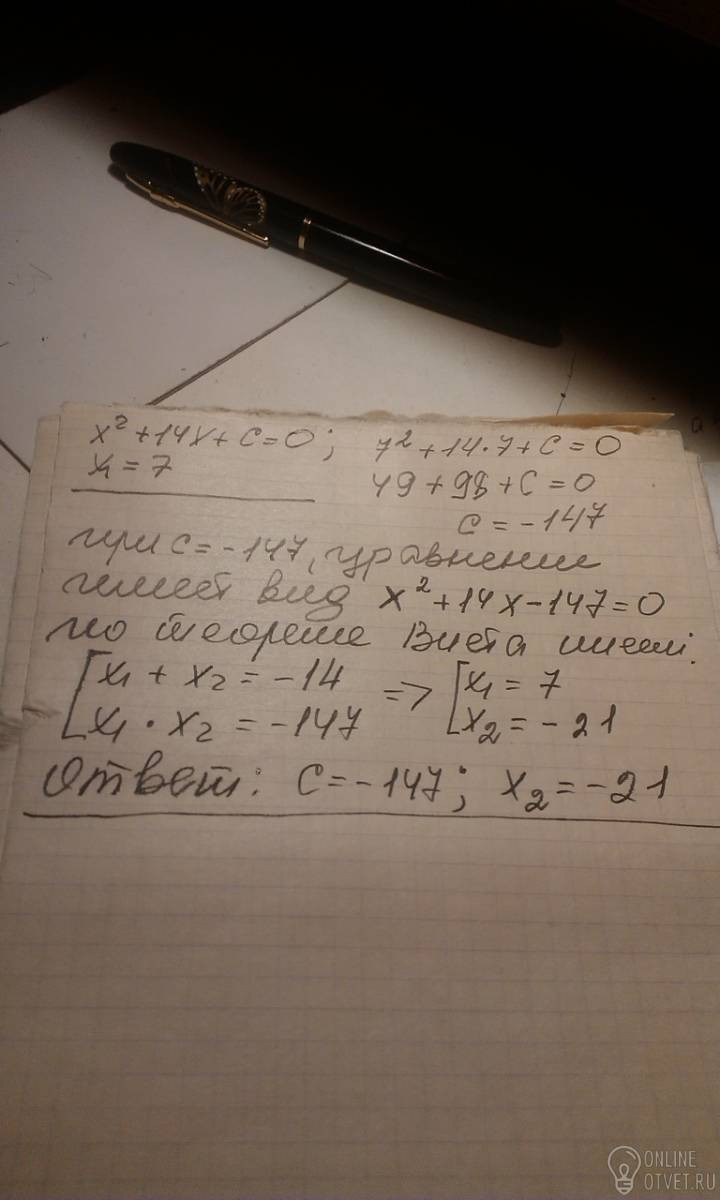 x² + 14x + c = 0; 7² + 14·7 + c = 0
x₁ = 7 49 + 98 + c = 0
c = -147
при c = -147, уравнение
имеет вид x² + 14x - 147 = 0
по теореме Виета имеем.
[x₁ + x₂ = -14 => [x₁ = 7
[x₁ · x₂ = -147 [x₂ = -21
Ответ: c = -147; x₂ = -21
ONLINE
OTVET.RU